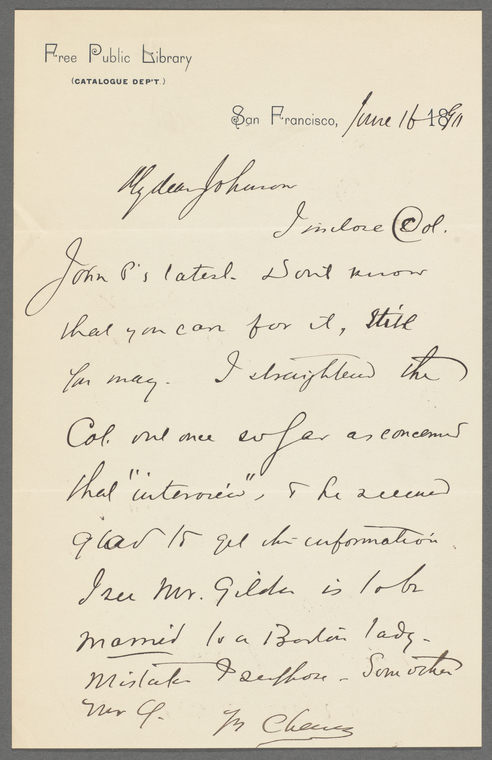 Free Public Library
(CATALOGUE DEP'T.)
San Francisco, June 16 1890
My dear Johnson
I inclose Col.
John P's latest. Don't know
that you care for it, still
you may. I straightened the
Col. out once so far as concerned
that "interview", & he seemed
glad to get the information.
I see Mr. Gilder is to be
married to a Boston lady.
Mistake I suppose - Some other
Mr G. Yr Cheney